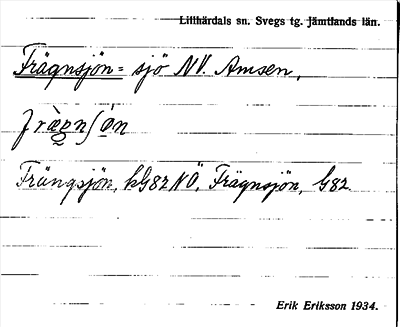 Lillhärdals sn. Svegs tg. Jämtlands län.
Frägnsjön = sjö NV. Amsen,
Frängsjön, kG82 NÖ, Frägnsjön, G82
Erik Eriksson 1934.